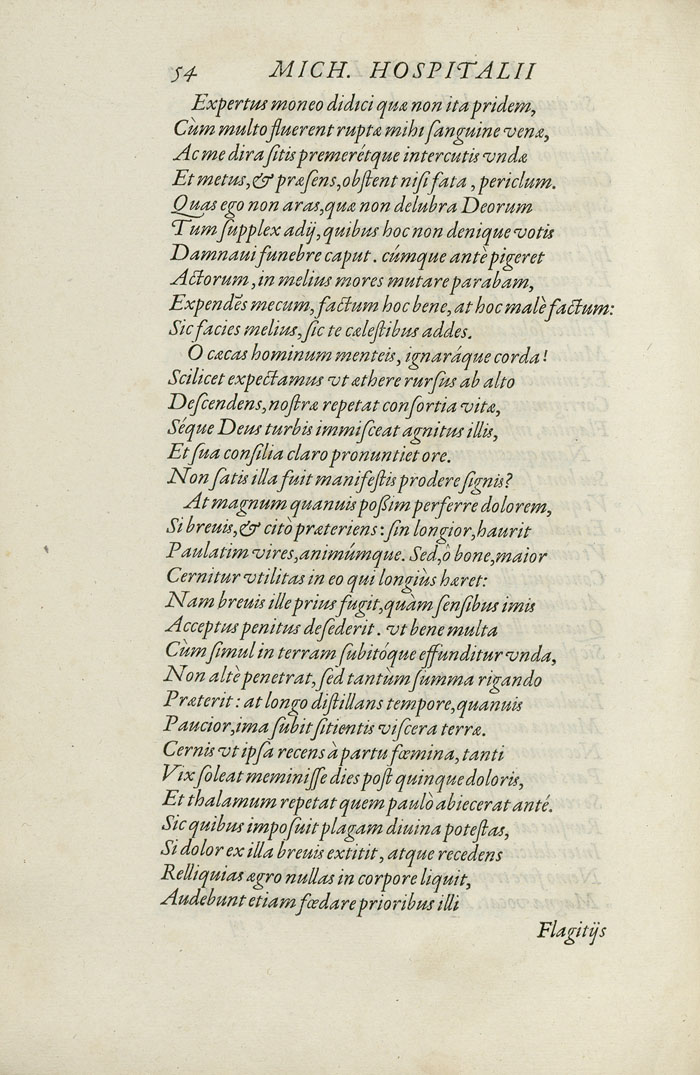 54 MICH. HOSPITALII
Expertus moneo didici quæ non ita pridem,
Cùm multo fluerent ruptæ mihi sanguine venæ,
Ac me dira sitis premeretque intercutis vndæ
Et metus, & præsens, obstent nisi fata, periclum.
Quas ego non aras, quæ non delubra Deorum
Tum supplex adij, quibus hoc non denique votis
Damnaui funebre caput. cúmque antè pigeret
Actorum, in melius mores mutare parabam,
Expendẽs mecum, factum hoc bene, at hoc malè factum:
Sic facies melius, sic te cælestibus addes.
O cæcas hominum menteis, ignaráque corda!
Scilicet expectamus vt æthere rursus ab alto
Descendens, nostræ repetat consortia vitæ,
Séque Deus turbis immisceat agnitus illis,
Et sua consilia claro pronuntiet ore.
Non satis illa fuit manifestis prodere signis?
At magnum quanuis poßim perferre dolorem,
Si breuis, & citò præteriens: sin longior, haurit
Paulatim vires, animúmque. Sed, ô bone, maior
Cernitur vtilitas in eo qui longiùs hæret:
Nam breuis ille prius fugit, quàm sensibus imis
Acceptus penitus desederit. vt bene multa
Cùm simul in terram subitóque effunditur vnda,
Non altè penetrat, sed tantùm summa rigando
Præterit: at longo distillans tempore, quanuis
Paucior, ima subit sitientis viscera terræ.
Cernis vt ipsa recens à partu fœmina, tanti
Vix soleat meminisse dies post quinque doloris,
Et thalamum repetat quem paulò abiecerat anté.
Sic quibus imposuit plagam diuina potestas,
Si dolor ex illa breuis extitit, atque recedens
Relliquias ægro nullas in corpore liquit,
Audebunt etiam fœdare prioribus illi
Flagitijs